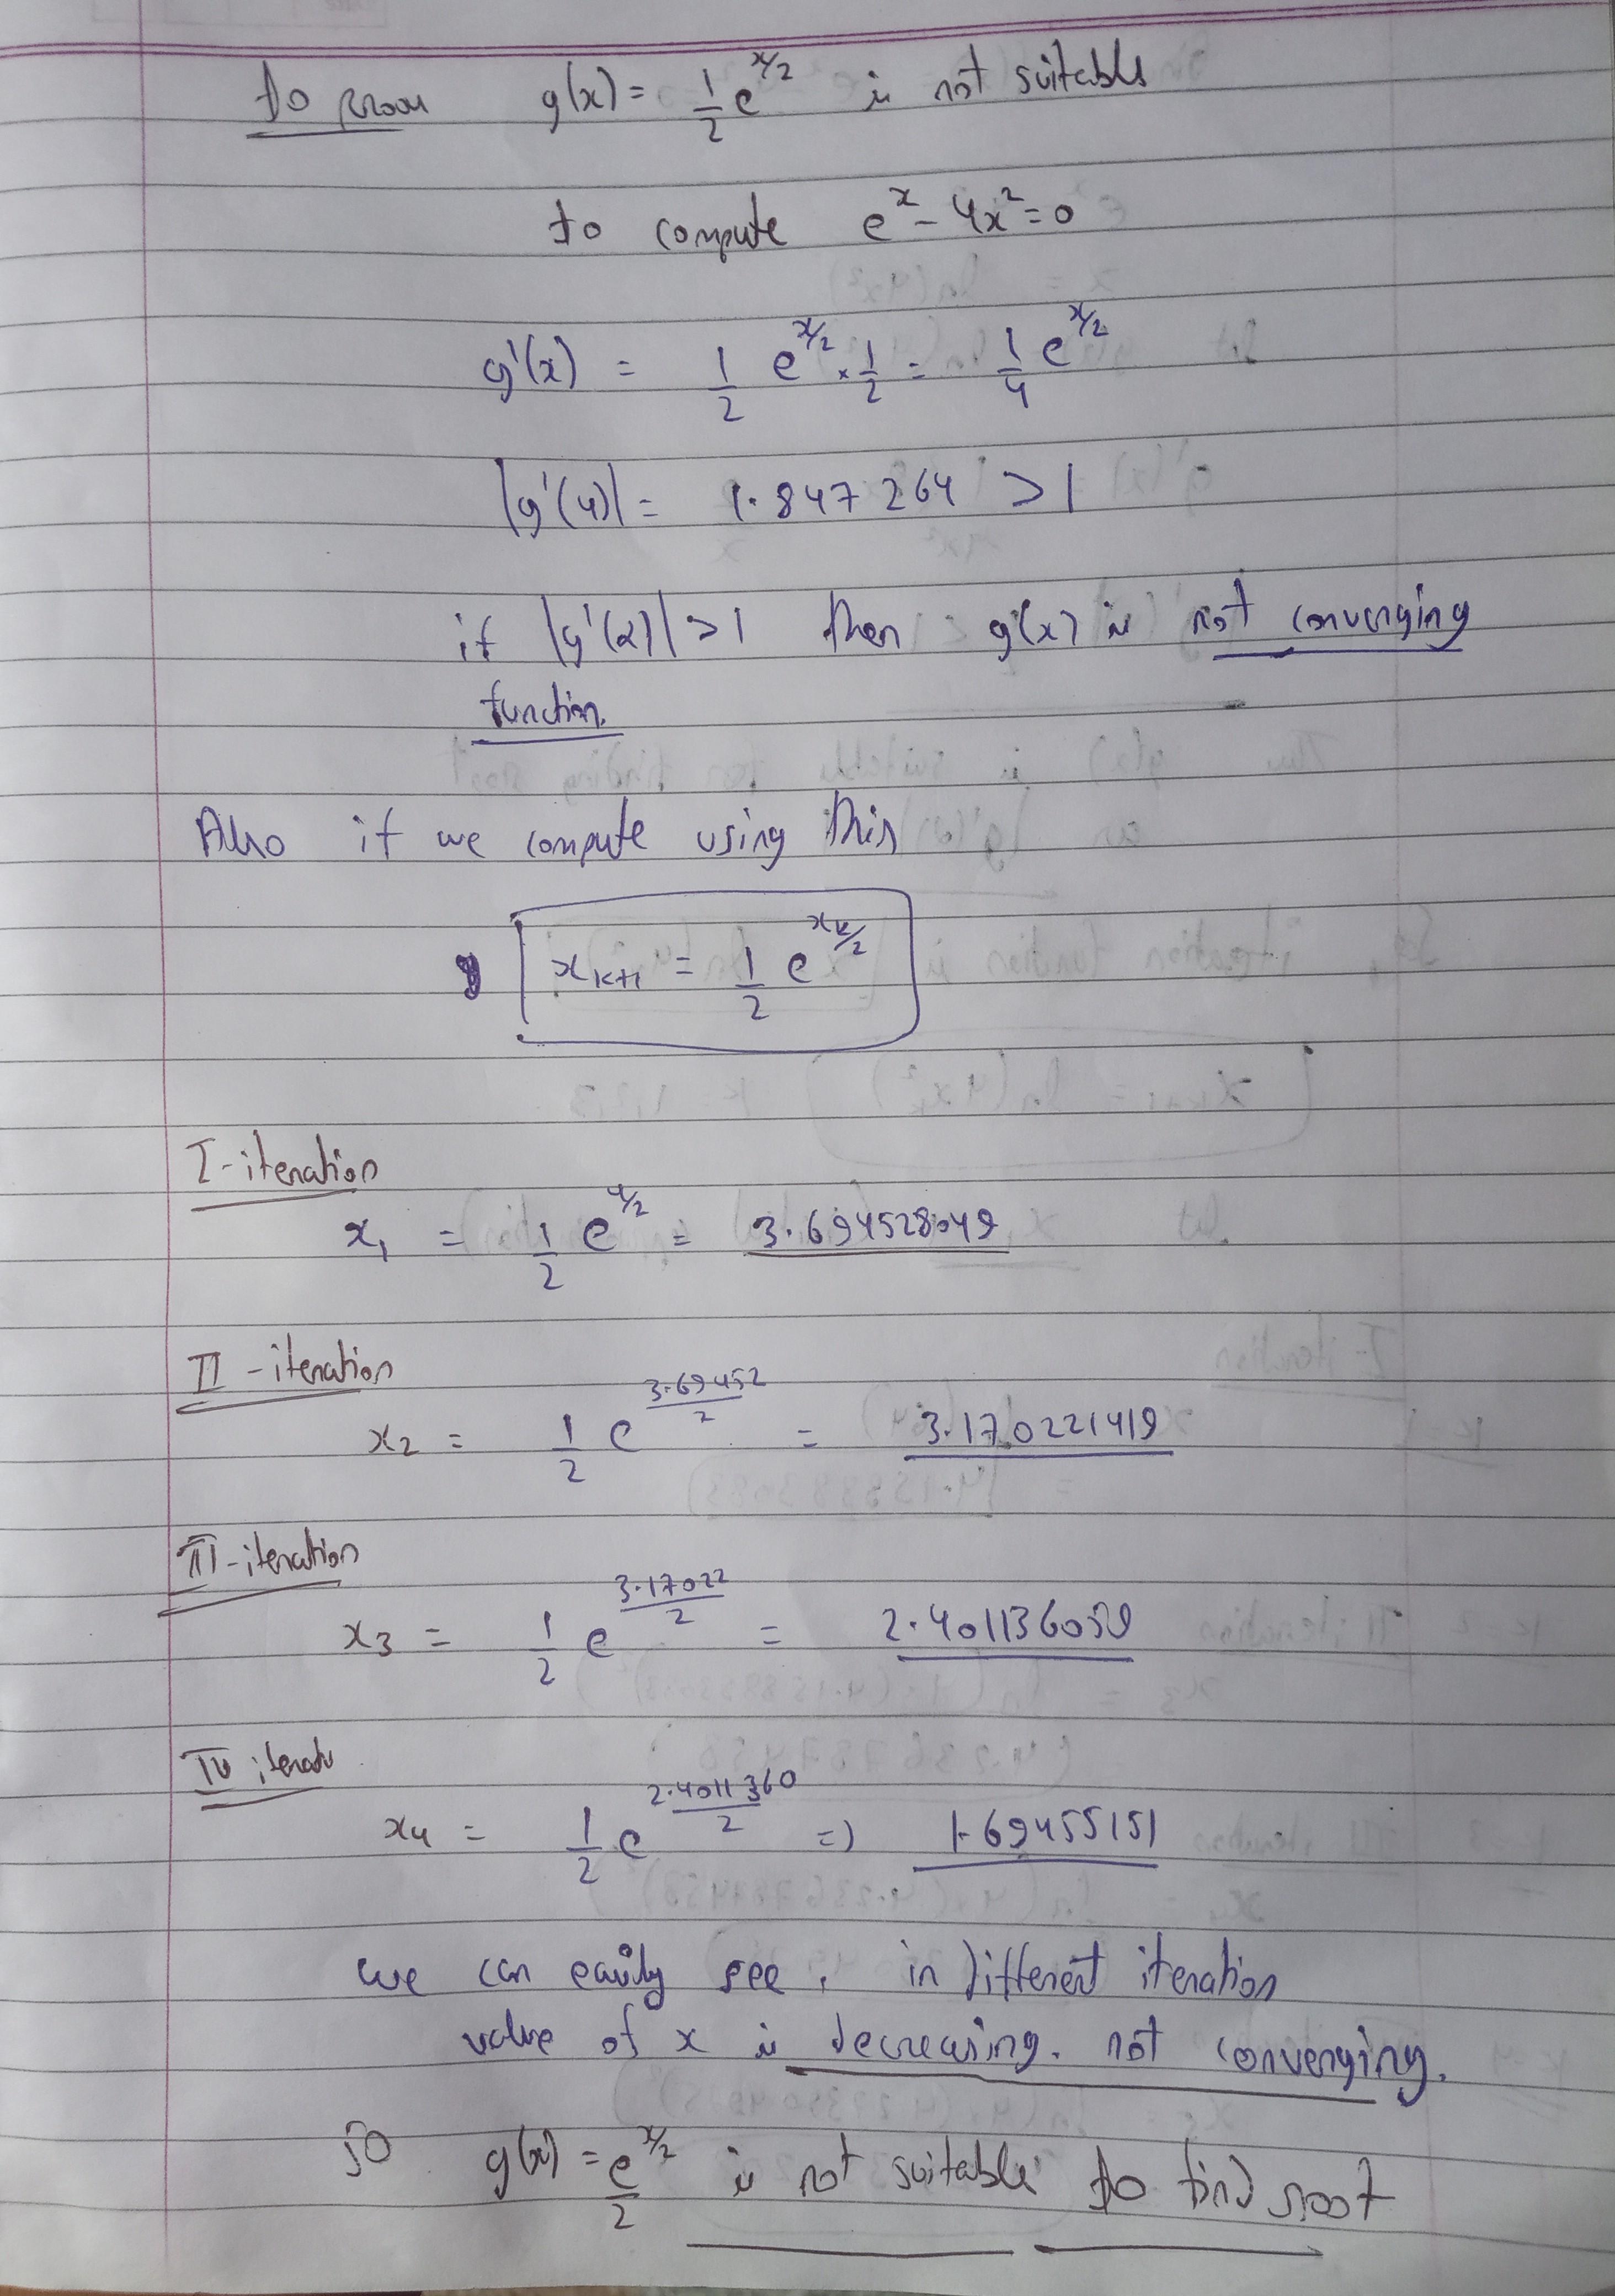 to prove g(x) = 1/2 e^x/2 is not suitable
to compute e^x - 4x² = 0
g'(x) = 1/2 e^x/2 × 1/2 = 1/4 e^x/2
|g'(4)| = 1.847264 > 1
if |g'(x)| > 1 then g(x) is not converging
function.
Also if we compute using this
x_k+1 = 1/2 e^x_k/2
I - iteration
x₁ = 1/2 e^4/2 = 3.694528049
II - iteration
x₂ = 1/2 e^3.69452/2 = 3.170221419
III - iteration
x₃ = 1/2 e^3.17022/2 = 2.401136059
IV iterati
x₄ = 1/2 e^2.4011360/2 => 1.69455151
we can easily see, in different iteration
value of x is decreasing. not converging.
so g(x) = e^x/2 / 2 is not suitable to find root